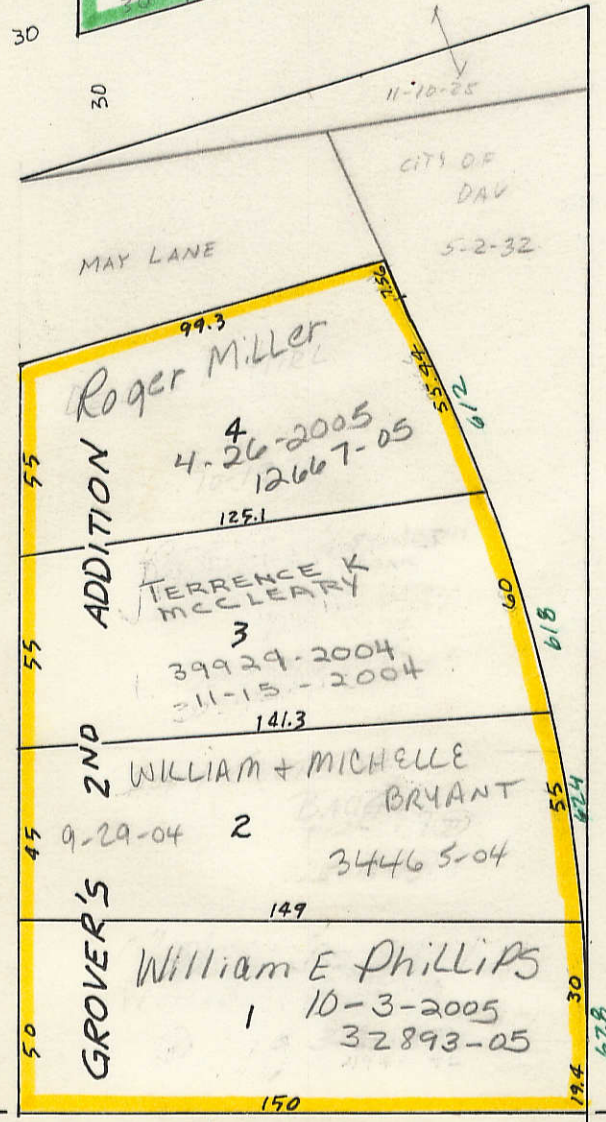 30
30
30
11-10-25
CITY OF
DAV
5-2-32
MAY LANE
99.3
7.56
Roger Miller
55.44
612
4
4-26-2005
12667-05
55
125.1
ADDITION
TERRENCE K
MCCLEARY
3
39929-2004
11-15-2004
60
618
55
141.3
2ND
WILLIAM + MICHELLE
BRYANT
9-29-04
2
34465-04
55
624
45
149
GROVER'S
William E Phillips
1
10-3-2005
32893-05
30
628
50
150
19.4